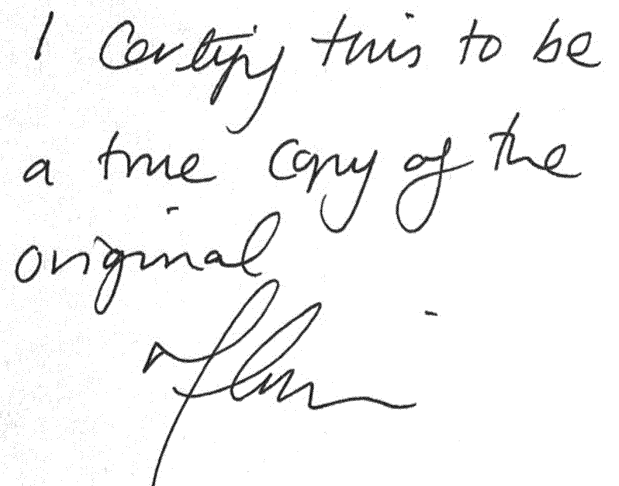 I certify this to be
a true copy of the
original